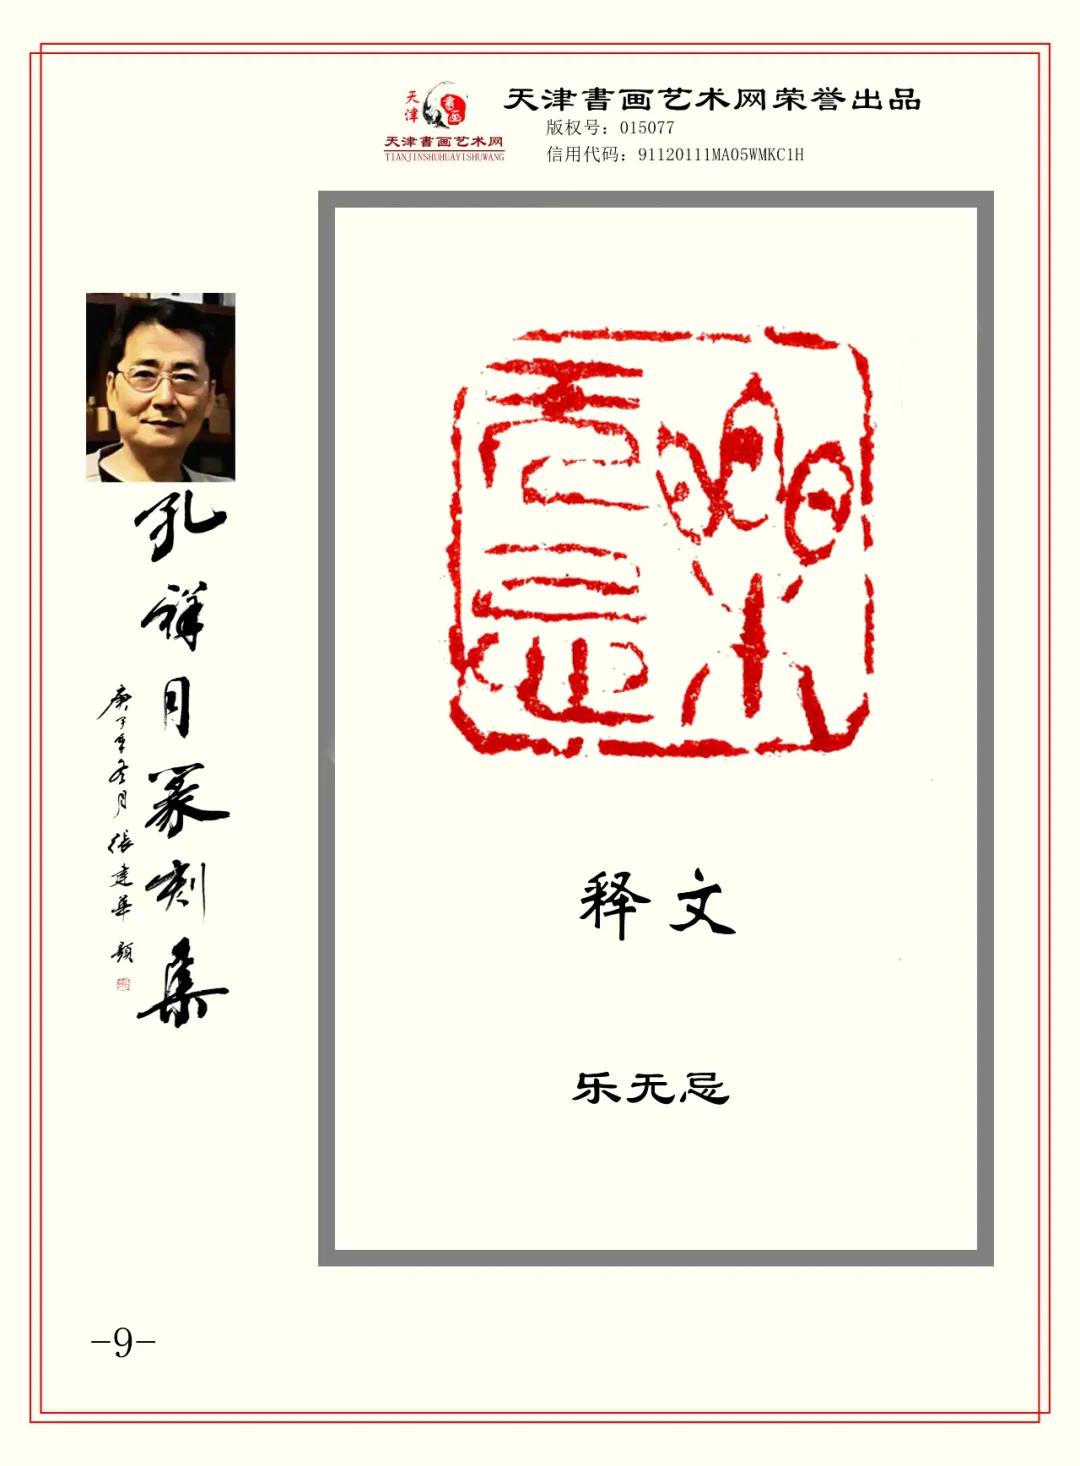 天津
書画
天津書画艺术网
TIANJINSHUHUAYISHUWANG
天津書画艺术网荣誉出品
版权号：015077
信用代码：91120111MA05WMKC1H
孔祥月篆刻集
庚子年冬月 張建华 题
樂无忌
释文
乐无忌
-9-